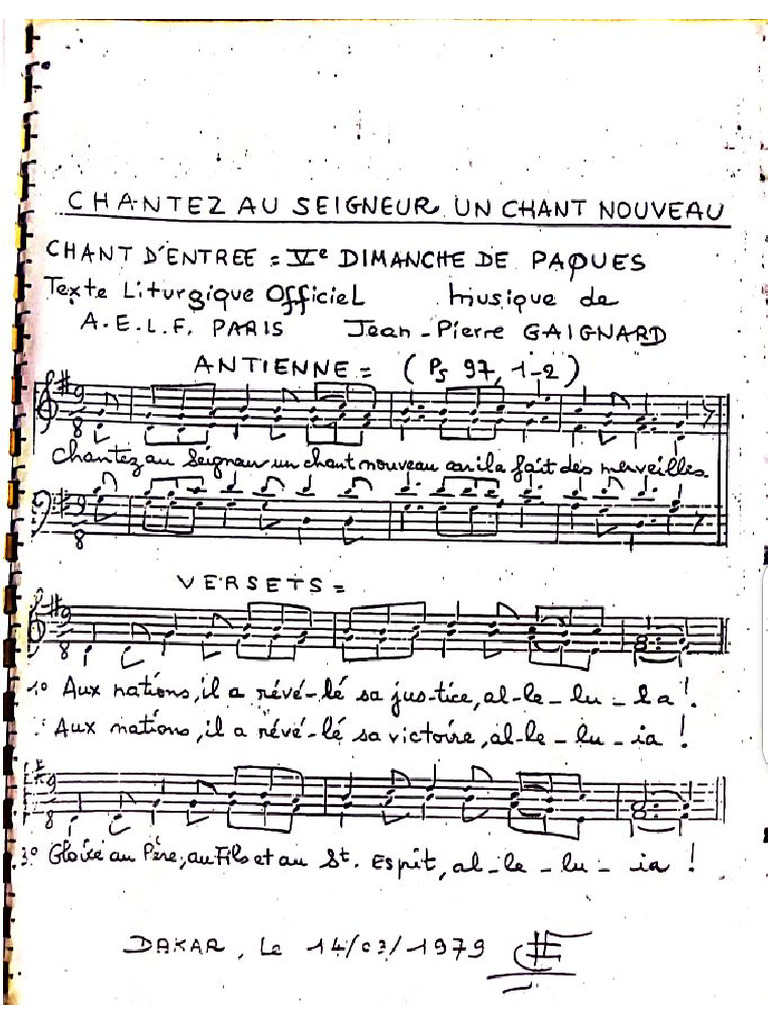 CHANTEZ AU SEIGNEUR UN CHANT NOUVEAU
CHANT D'ENTREE = Ve DIMANCHE DE PAQUES
Texte Liturgique Officiel Musique de
A.E.L.F. PARIS Jean-Pierre GAIGNARD
ANTIENNE = (Ps 97, 1-2)
9
8
Chantez au Seigneur un chant nouveau car il a fait des merveilles.
9
8
VERSETS =
9
8
1° Aux nations, il a révé-lé sa jus-tice, al-le-lu-ia !
Aux nations, il a révé-lé sa victoire, al-le-lu-ia !
9
8
3° Gloire au Père, au Fils et au St. Esprit, al-le-lu-ia !
DAKAR, Le 14/03/1979